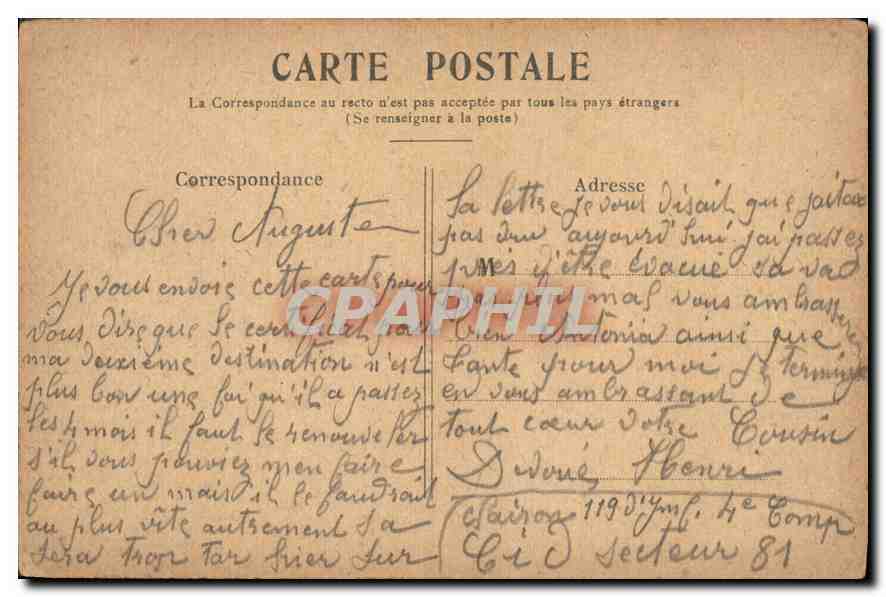 CARTE POSTALE
La Correspondance au recto n'est pas acceptée par tous les pays étrangers
(Se renseigner à la poste)
Correspondance
Cher Auguste
Je vous envoie cette carte pour
vous dire que le certificat pour
ma deuxième destination n'est
plus bon une foi qu'il a passez
les 4 mois il faut le renouveler
s'il vous pouviez men faire
faire un mais il le faudrait
au plus vite autrement sa
sera trop tar hier sur
Adresse
M
sa lettre je vous disait que
pas aujourd'hui j'ai passez
près d'être évacué sa va
pas mal vous ambrasserez
bien Antonia ainsi que
tante pour moi je termine
en vous ambrassant de
tout cœur votre Cousin
Henri
Clairon 119 d'Ymf. 4e Comp
secteur 81
CPAPHIL